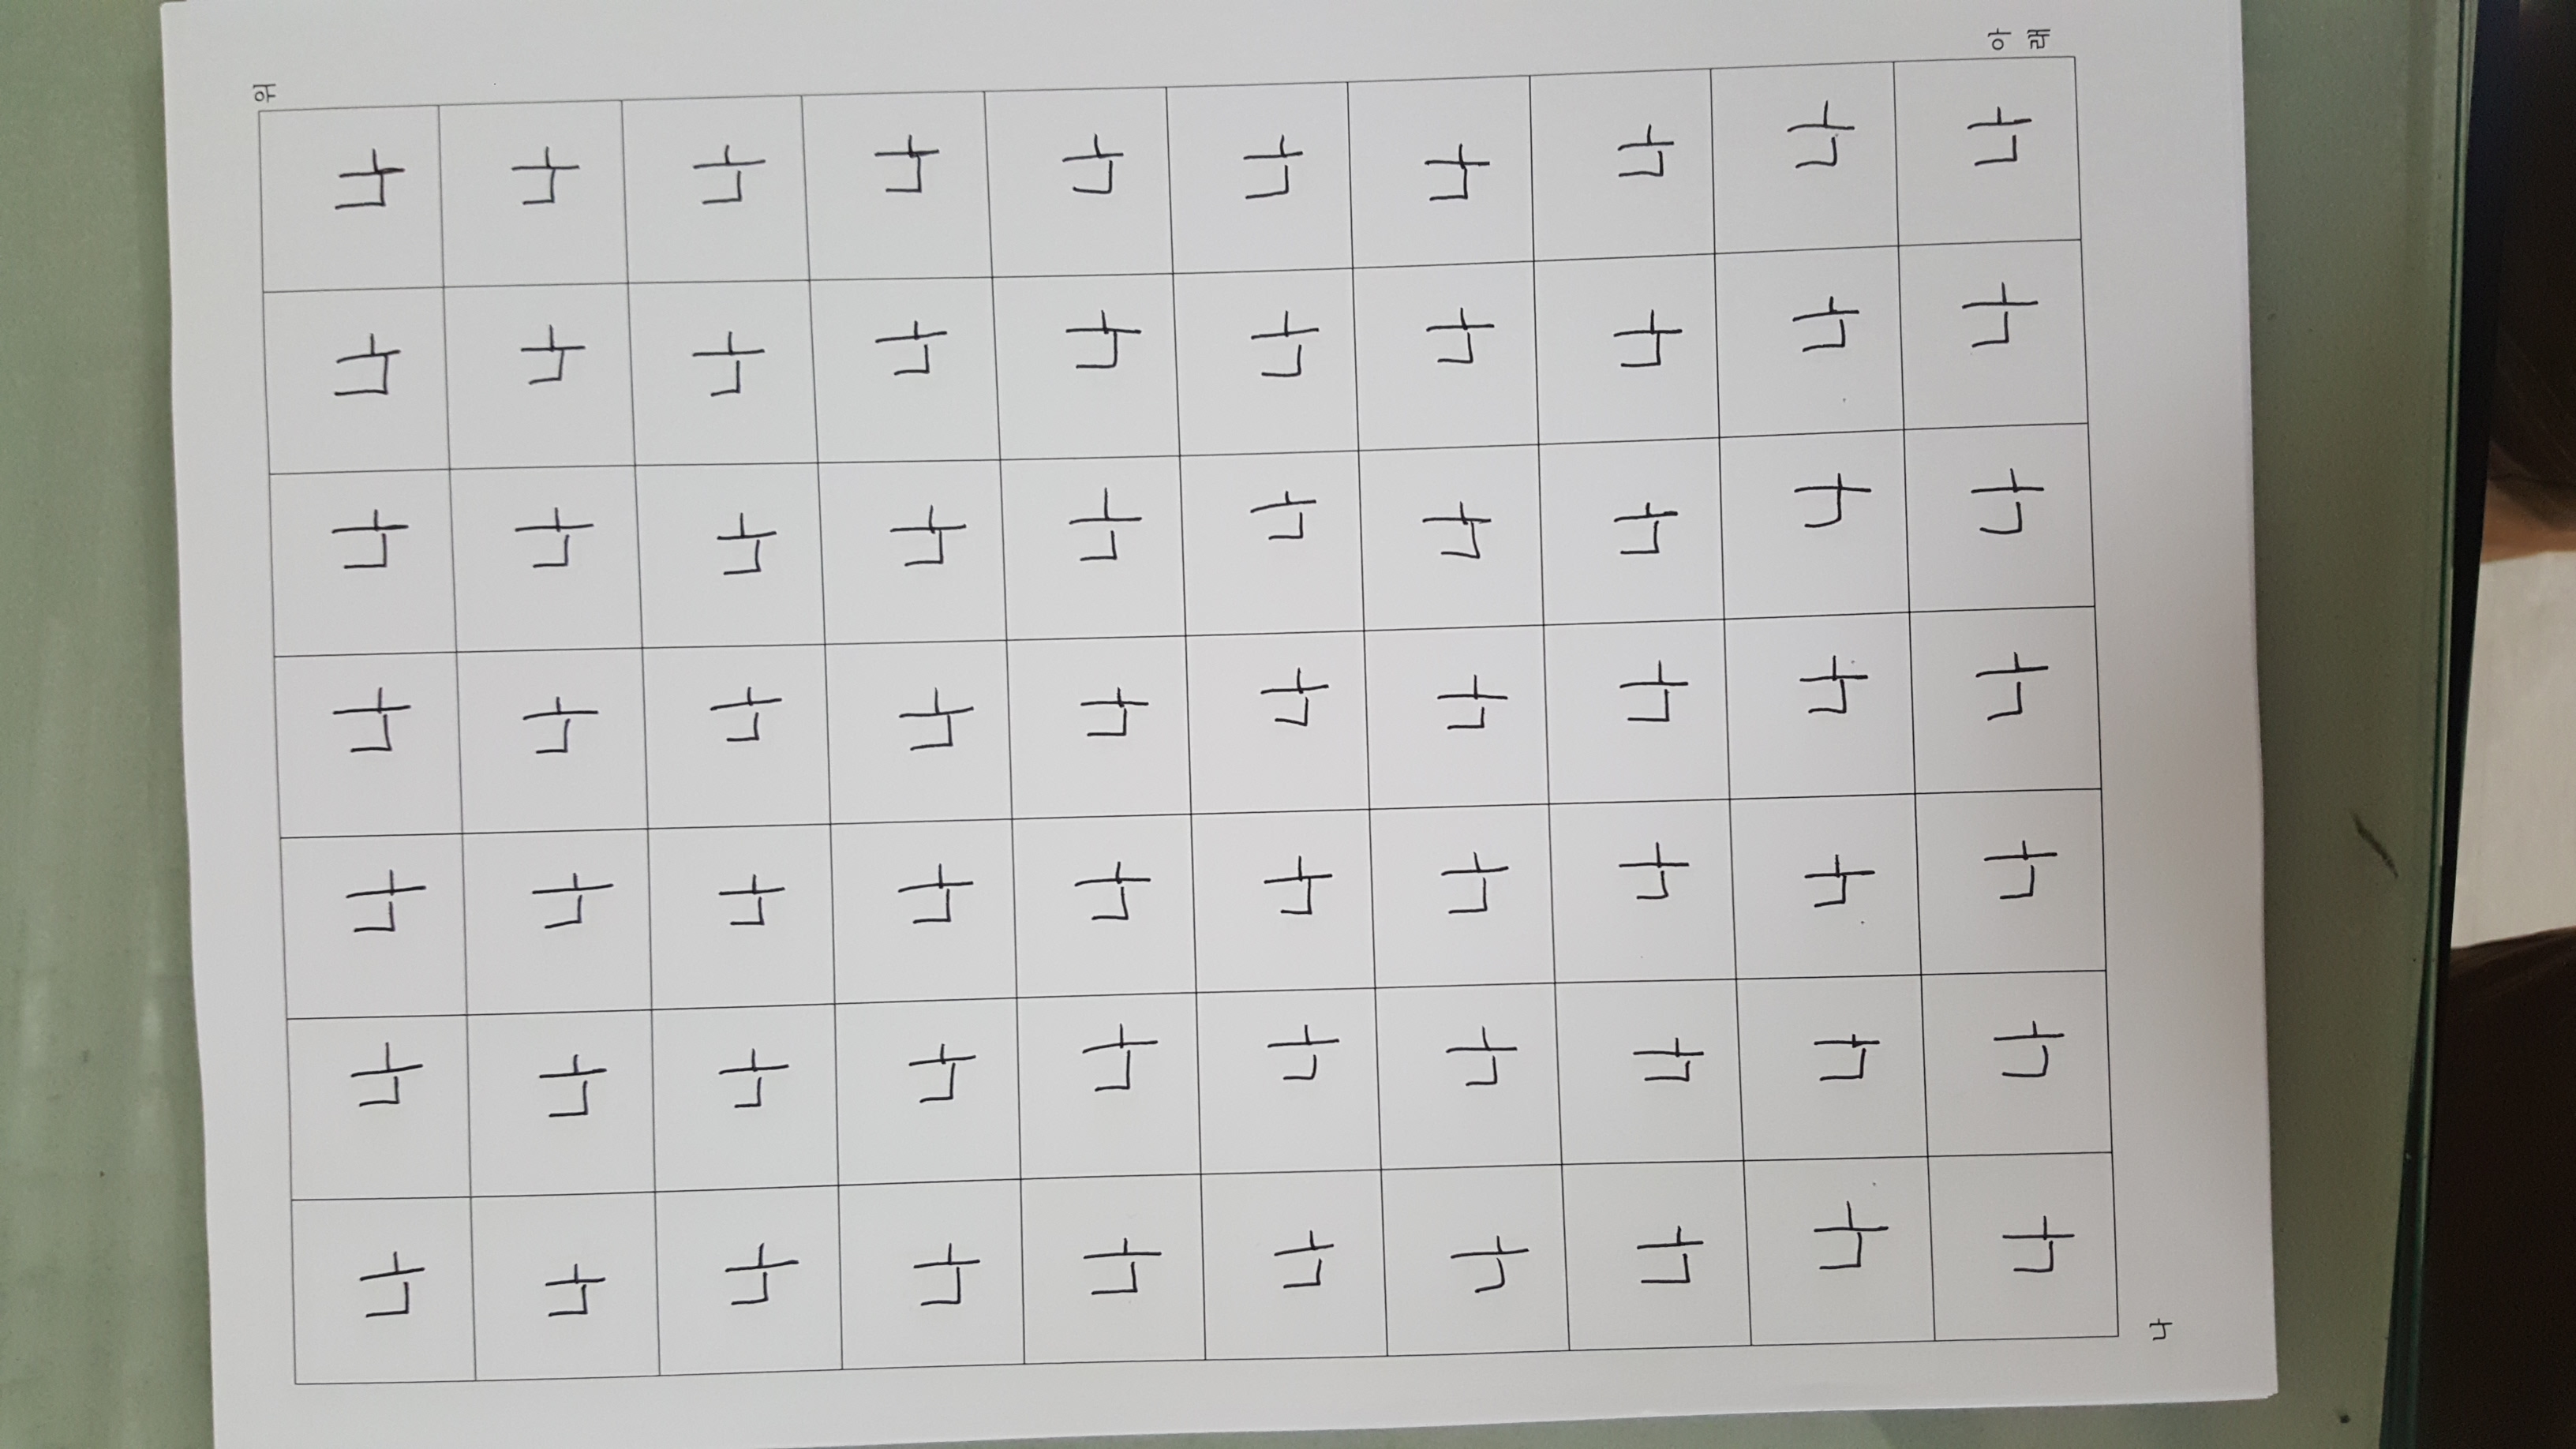 위
나 나 나 나 나 나 나
나 나 나 나 나 나 나
나 나 나 나 나 나 나
나 나 나 나 나 나 나
나 나 나 나 나 나 나
나 나 나 나 나 나 나
나 나 나 나 나 나 나
나 나 나 나 나 나 나
나 나 나 나 나 나 나
나 나 나 나 나 나 나
아
래
나